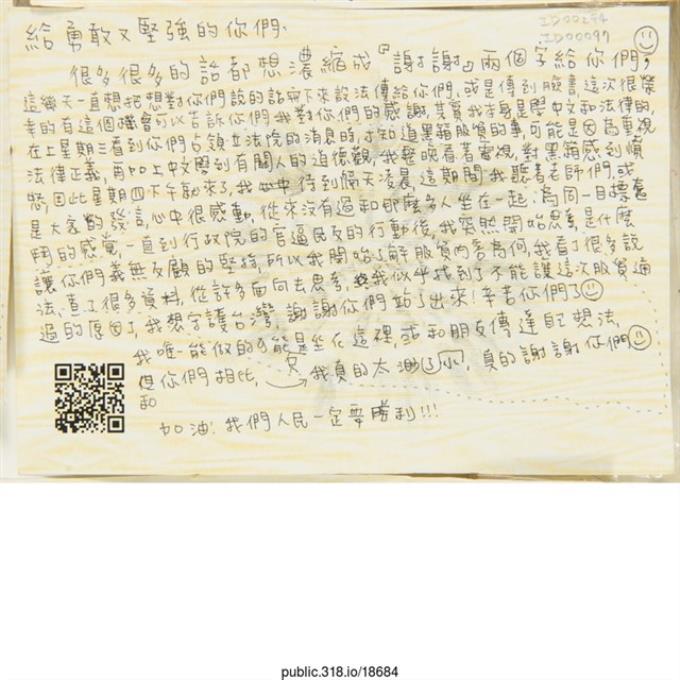 ID00294
ID00097
給勇敢又堅強的你們、
很多很多的話都想濃縮成『謝謝』兩個字給你們,
這幾天一直想把想對你們說的話寫下來設法傳給你們、或是傳到臉書,這次很榮
幸的有這個機會可以告訴你們我對你們的感謝,其實我本身是學中文和法律的,
在上星期三看到你們占領立法院的消息時,才知道黑箱服貿的事,可能是因為重視
法律正義,再加上中文學到有關人的道德觀,我整晚看著電視,對黑箱感到憤
怒,因此星期四下午勸來了,我心中待到隔天凌晨,這期間我聽著老師們,或
是大家的發言,心中很感動,從來沒有過和那麼多人坐在一起,為同一目標奮
鬥的感覺,一直到行政院的官逼民反的行動後,我突然開始思考,是什麼
讓你們義無反顧的堅持,所以我開始了解服貿內容為何,我看了很多說
法、查了很多資料,從許多面向去思考,我似乎找到了不能讓這次服貿通
過的原因了,我想守護台灣,謝謝你們站了出來!辛苦你們了
我唯一能做的可能是坐在這裡,或和朋友傳達自己想法,
但和你們相比,只我真的太渺小,真的謝謝你們
加油!我們人民一定要勝利!!!
public.318.io/18684